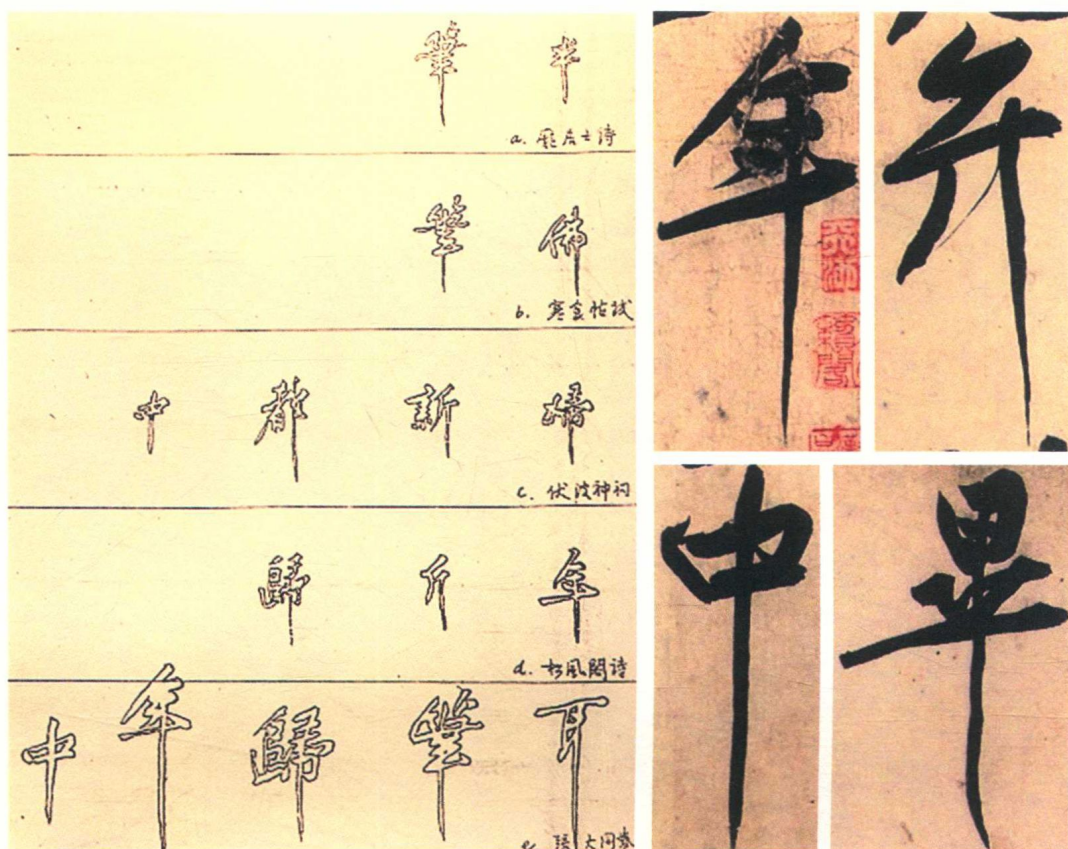 筆 半
a. 龐居士诗
筆 佛
b. 寒食帖跋
中 都 新
c. 伏波神祠
歸 斤 年
d. 松風閣诗
中 年 歸 筆 耳
e. 張大同卷
年 斤
中